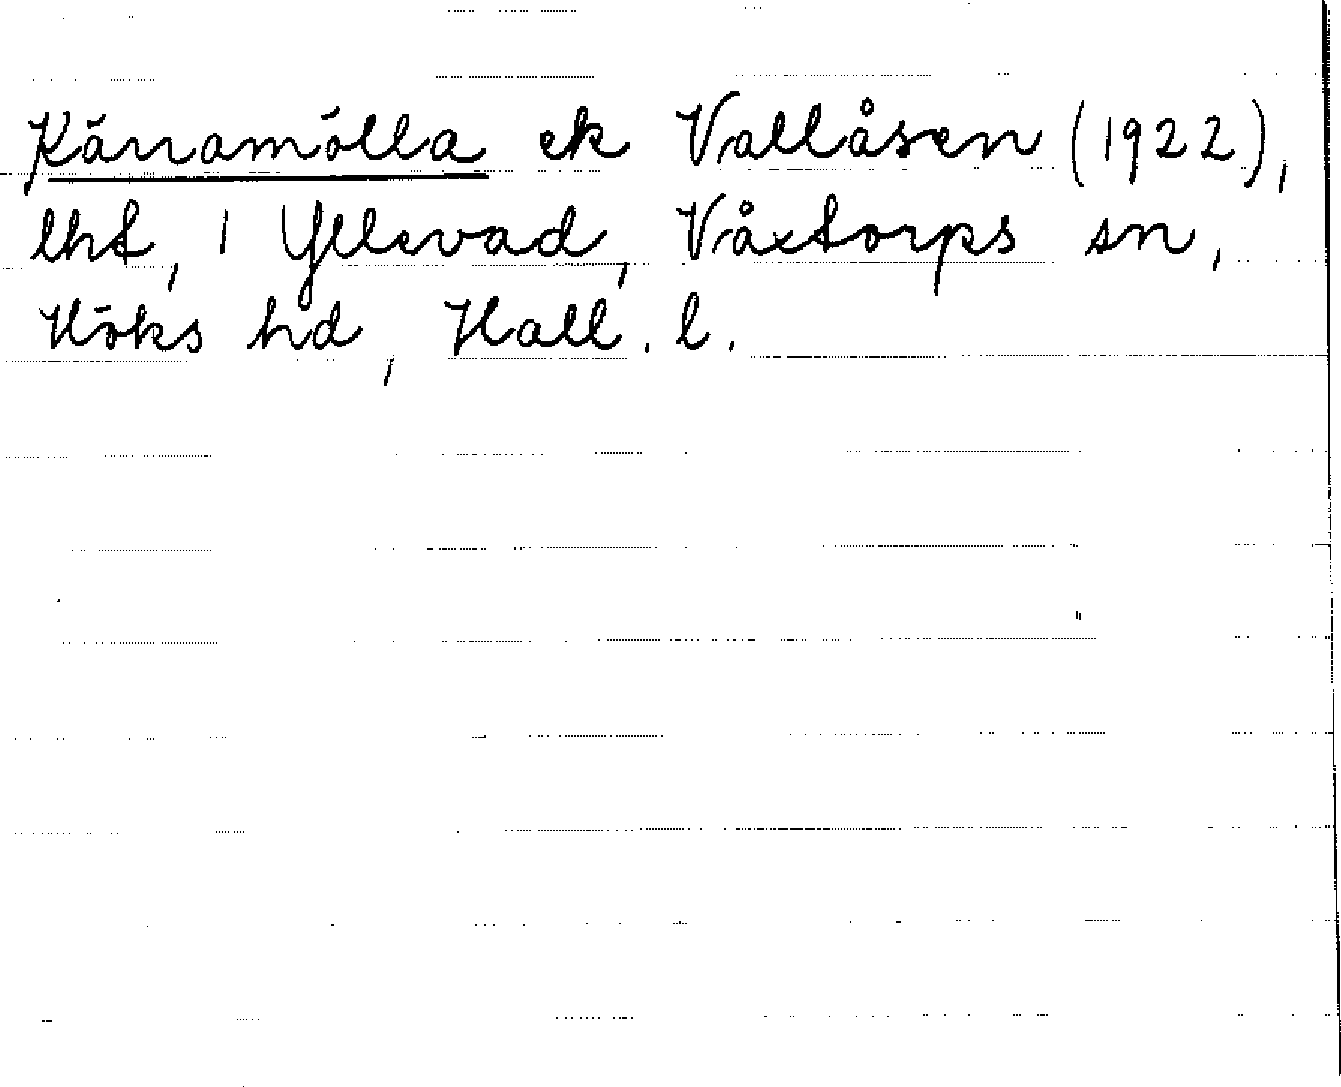 Kärramölla ek Vallåsen (1922),
lht, i Yllevad, Våxtorps sn,
Höks hd, Hall. l.